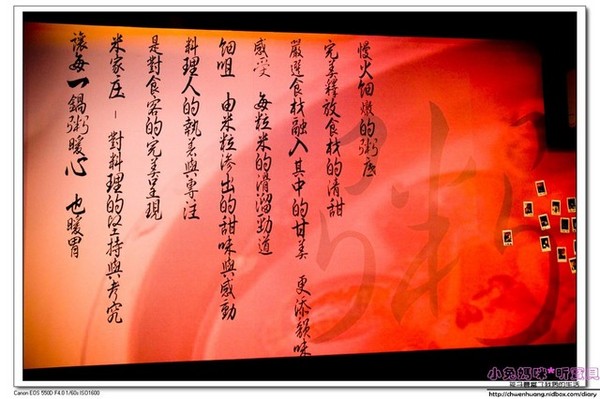 慢火細燉的粥底
完美釋放食材的清甜
嚴選食材融入其中的甘美 更添韻味
感受 每粒米的滑溜勁道
細咀 由米粒滲出的甜味與感動
料理人的執著與專注
是對食客的完美呈現
米家庄-對料理的堅持與考究
讓每一鍋粥暖心 也暖胃
粥
Canon EOS 550D F4.0 1/60s ISO1600
小兔媽咪*听意見
http://chuenhuang.nidbox.com/diary